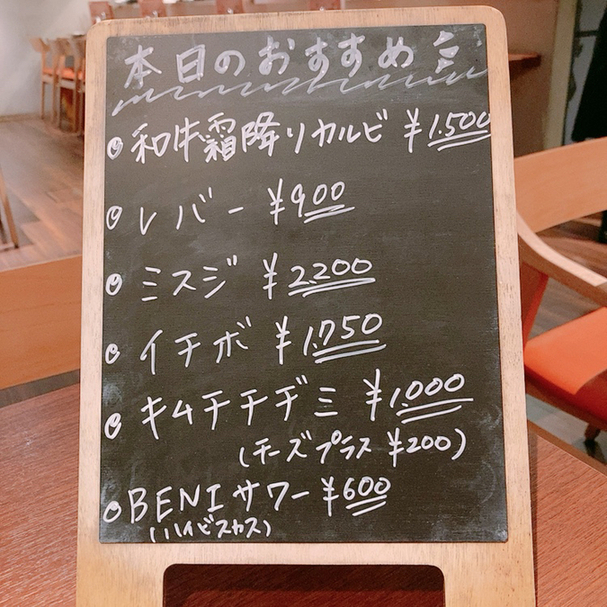 本日のおすすめ
和牛霜降りカルビ ¥1,500
レバー ¥900
ミスジ ¥2,200
イチボ ¥1,750
キムチチヂミ ¥1,000
(チーズプラス ¥200)
BENIサワー ¥600
(ハイビスカス)